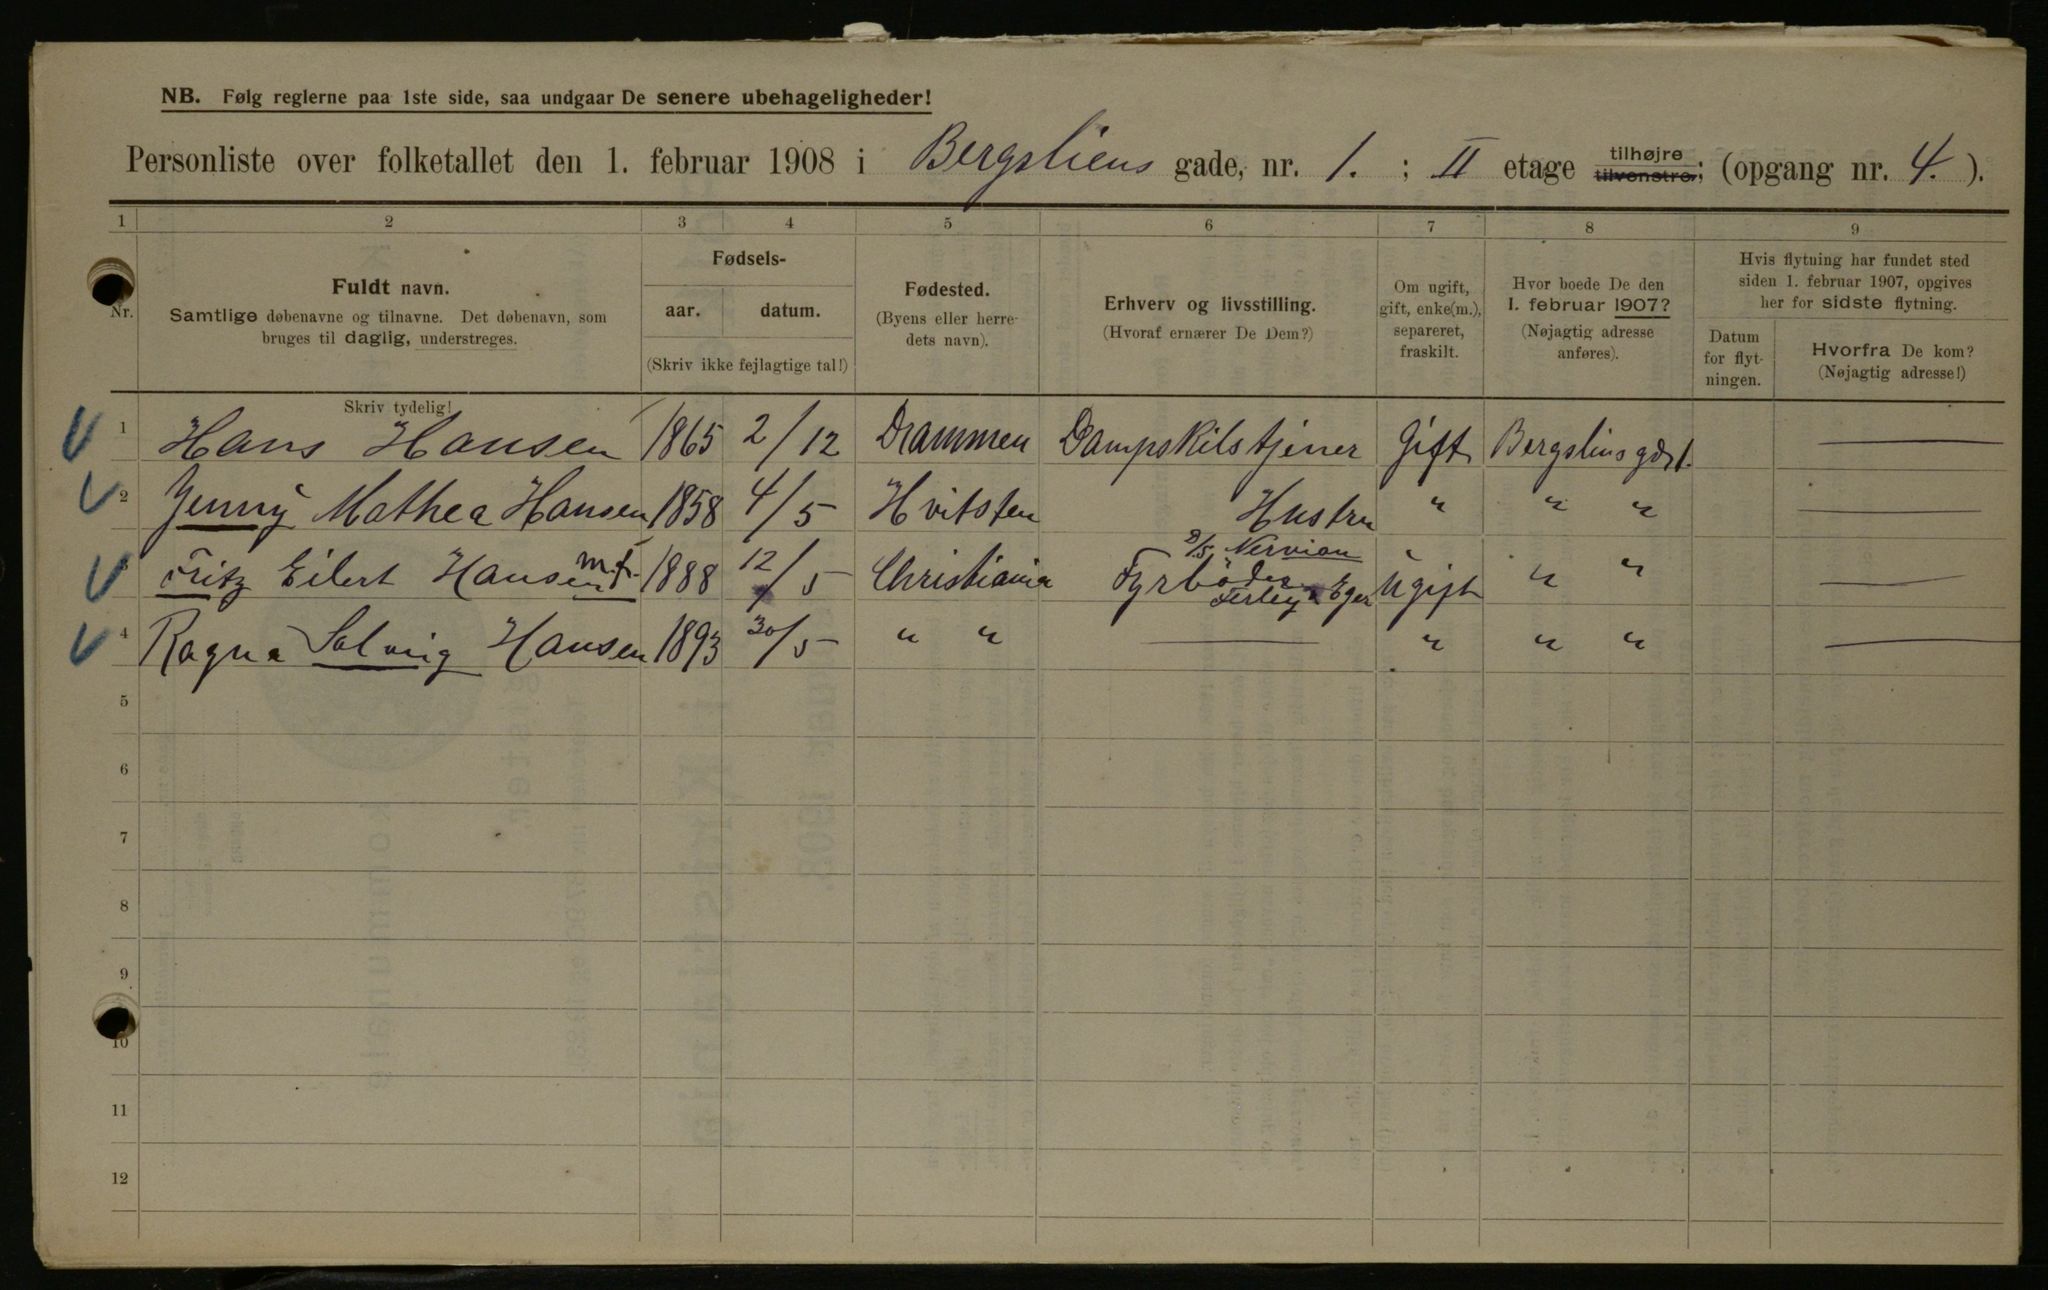 NB. Følg reglerne paa 1ste side, saa undgaar De senere ubehageligheder!
Personliste over folketallet den 1. februar 1908 i Bergsliens gade, nr. 1. ; II etage tilhøjre tilvenstre; (opgang nr. 4. ).
1 2 3 4 5 6 7 8 9
Nr.
Fuldt navn.
Samtlige døbenavne og tilnavne. Det døbenavn, som
bruges til daglig, understreges.
Fødsels-
aar. datum.
(Skriv ikke fejlagtige tal!)
Fødested.
(Byens eller herre-
dets navn).
Erhverv og livsstilling.
(Hvoraf ernærer De Dem?)
Om ugift,
gift, enke(m.),
separeret,
fraskilt.
Hvor boede De den
1. februar 1907?
(Nøjagtig adresse
anføres).
Hvis flytning har fundet sted
siden 1. februar 1907, opgives
her for sidste flytning.
Datum
for flyt-
ningen.
Hvorfra De kom?
(Nøjagtig adresse!)
Skriv tydelig!
1 Hans Hansen 1865 2/12 Drammen Dampskibstjener Gift Bergsliensgd 1.
2 Jenny Mathea Hansen 1858 4/5 Hvitsten Hustru " " "
3 Fritz Eilert Hansen m.f. 1888 12/5 Christiania Fyrböder Ugift " "
4 Ragna Solveig Hansen 1893 30/5 " " — " " "
5
6
7
8
9
10
11
12